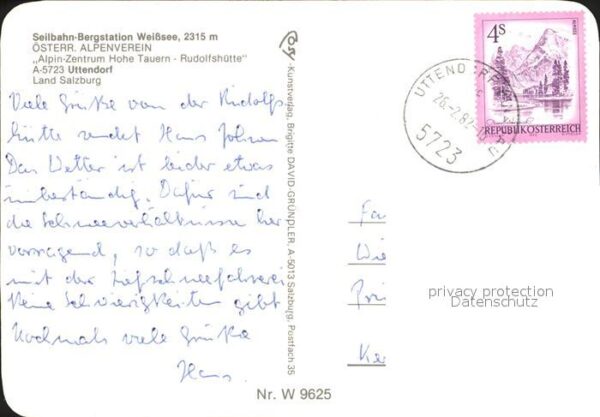 Seilbahn-Bergstation Weißsee, 2315 m
ÖSTERR. ALPENVEREIN
„Alpin-Zentrum Hohe Tauern - Rudolfshütte"
A-5723 Uttendorf
Land Salzburg
Viele Grüße von der Rudolfs-
hütte sendet Hans
Das Wetter ist leider etwas
unbeständig. Dafür sind
die Schneeverhältnisse her
vorragend, so daß es
mit der Tiefschneefahrerei
keine Schwierigkeiten gibt
Nochmals viele Grüße
Hans.
Cosy-Kunstverlag, Brigitte DAVID-GRÜNDLER, A-5013 Salzburg, Postfach 35
Nr. W 9625
4S
REPUBLIK ÖSTERREICH
UTTENDORF
26.-2.82
5723
Fa
Wie
Ke
privacy protection
Datenschutz